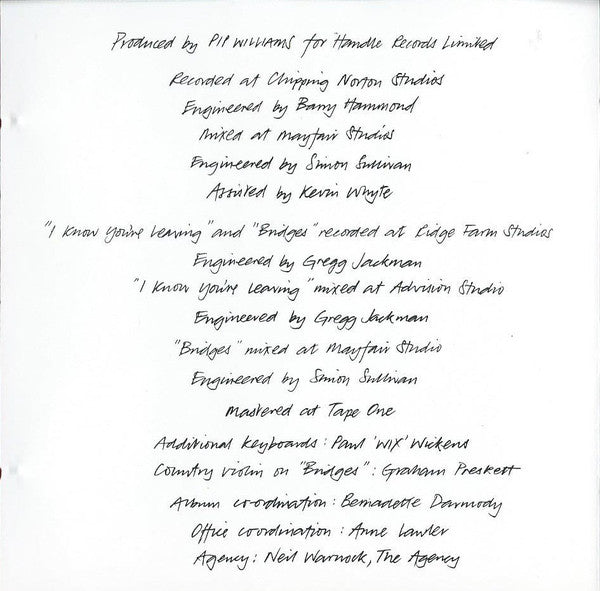 Produced by PIP WILLIAMS for Handle Records Limited
Recorded at Chipping Norton Studios
Engineered by Barry Hammond
Mixed at Mayfair Studios
Engineered by Simon Sullivan
Assisted by Kevin Whyte
"I Know You're Leaving" and "Bridges" recorded at Ridge Farm Studios
Engineered by Gregg Jackman
"I Know You're Leaving" mixed at Advision Studio
Engineered by Gregg Jackman
"Bridges" mixed at Mayfair Studio
Engineered by Simon Sullivan
Mastered at Tape One
Additional Keyboards: Paul 'WIX' Wickens
Country violin on "Bridges": Graham Preskett
Album co-ordination: Bernadette Darmody
Office coordination: Anne Lawler
Agency: Neil Warnock, The Agency